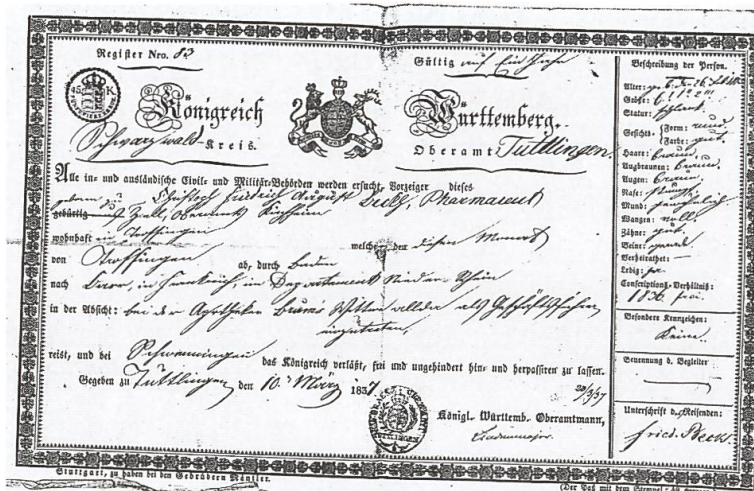 Register Nro. 83
Gültig auf Ein Jahr
45 K.
Königreich Württemberg.
Schwarzwald-Kreis. Oberamt Tuttlingen.
Alle in- und ausländische Civil- und Militär-Behörden werden ersucht, Vorzeiger dieses
Christoph Friedrich August Beckh, Pharmaceut
gebürtig Zell, Oberamts Kirchheim
wohnhaft in Trossingen welcher den diesen Monat
von Trossingen ab, durch Baden
nach Barr, in Frankreich, im Departement Nieder-Rhein
in der Absicht: bei der Apotheker Wittwe allda als Geschäftsführer
einzutreten,
reist, und bei Schwenningen das Königreich verläßt, frei und ungehindert hin- und herpassiren zu lassen.
Gegeben zu Tuttlingen den 10. März 1837
20/3/37
Königl. Württemb. Oberamtmann,
Stuttgart, zu haben bei den Gebrüdern Mäntler.
Beschreibung der Person.
Alter:
Größe: 6'
Statur: schlank
Gesichts- Form: rund
Farbe: gut.
Haare: braun.
Augbraunen: braun.
Augen: braun
Nase:
Mund: gewöhnlich
Wangen: voll
Zähne: gut.
Beine: gerade
Verheirathet: —
Ledig: ja.
Conscriptions-Verhältniß:
1836. frei.
Besondere Kennzeichen:
Keine.
Benennung d. Begleiter
Unterschrift d. Reisenden:
Fried. Beckh.
(Der Paß mit dem Stempel